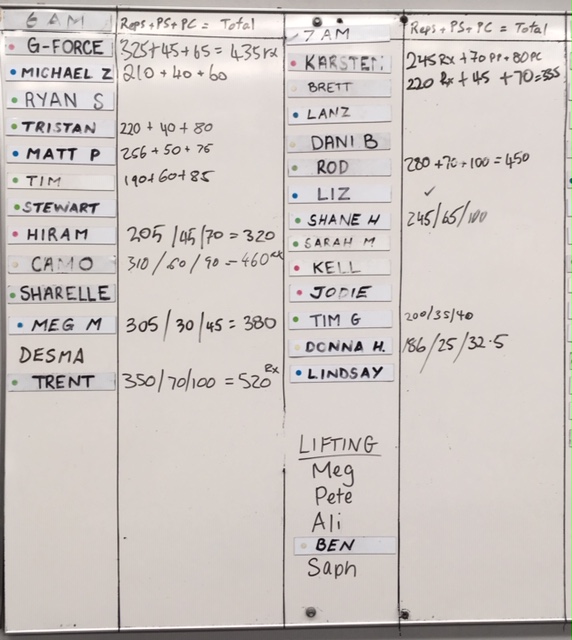 6 AM
Reps + PS + PC = Total
G-FORCE 325+45+65 = 435 rx
MICHAEL Z 210 + 40 + 60
RYAN S
TRISTAN 220 + 40 + 80
MATT P 256 + 50 + 75
TIM 190 + 60 + 85
STEWART
HIRAM 205 /45/70 = 320
CAMO 310 / 60 / 90 = 460 rx
SHARELLE
MEG M 305 / 30 / 45 = 380
DESMA
TRENT 350/70/100 = 520 Rx
7 AM
Reps + PS + PC = Total
KARSTEN 245 Rx + 70 PP + 80 PC
BRETT 220 Rx + 45 + 70 = 335
LANZ
DANI B
ROD 280 + 70 + 100 = 450
LIZ ✓
SHANE H 245/65/100
SARAH M
KELL
JODIE
TIM G 200/35/40
DONNA H. 186/25/32.5
LINDSAY
LIFTING
Meg
Pete
Ali
BEN
Saph